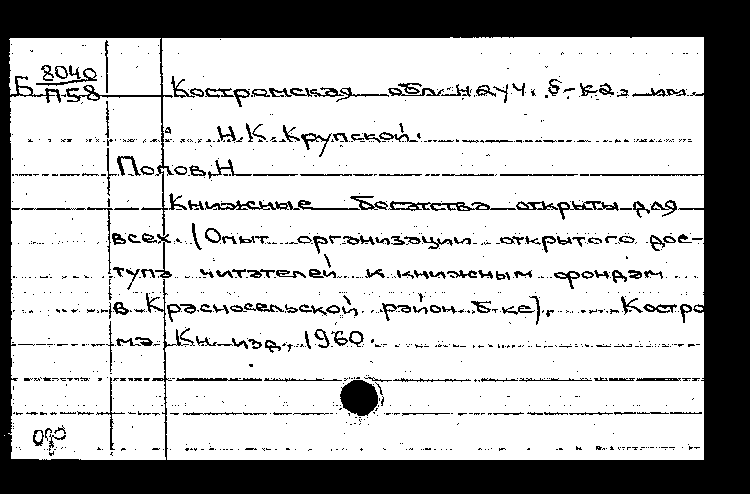 Б 8040
П58
Костромская обл. науч. б-ка. им.
Н.К. Крупской.
Попов, Н
Книжные богатства открыты для
всех. (Опыт организации открытого дос-
тупа читателей к книжным фондам
в Красносельской район. б-ке). Костро
ма Кн. изд., 1960.